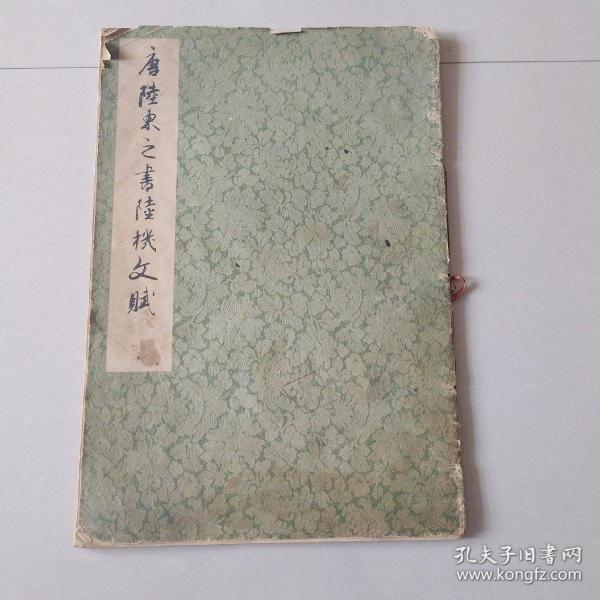 唐陸柬之書陸機文賦
孔夫子旧書网
www.kongfz.com